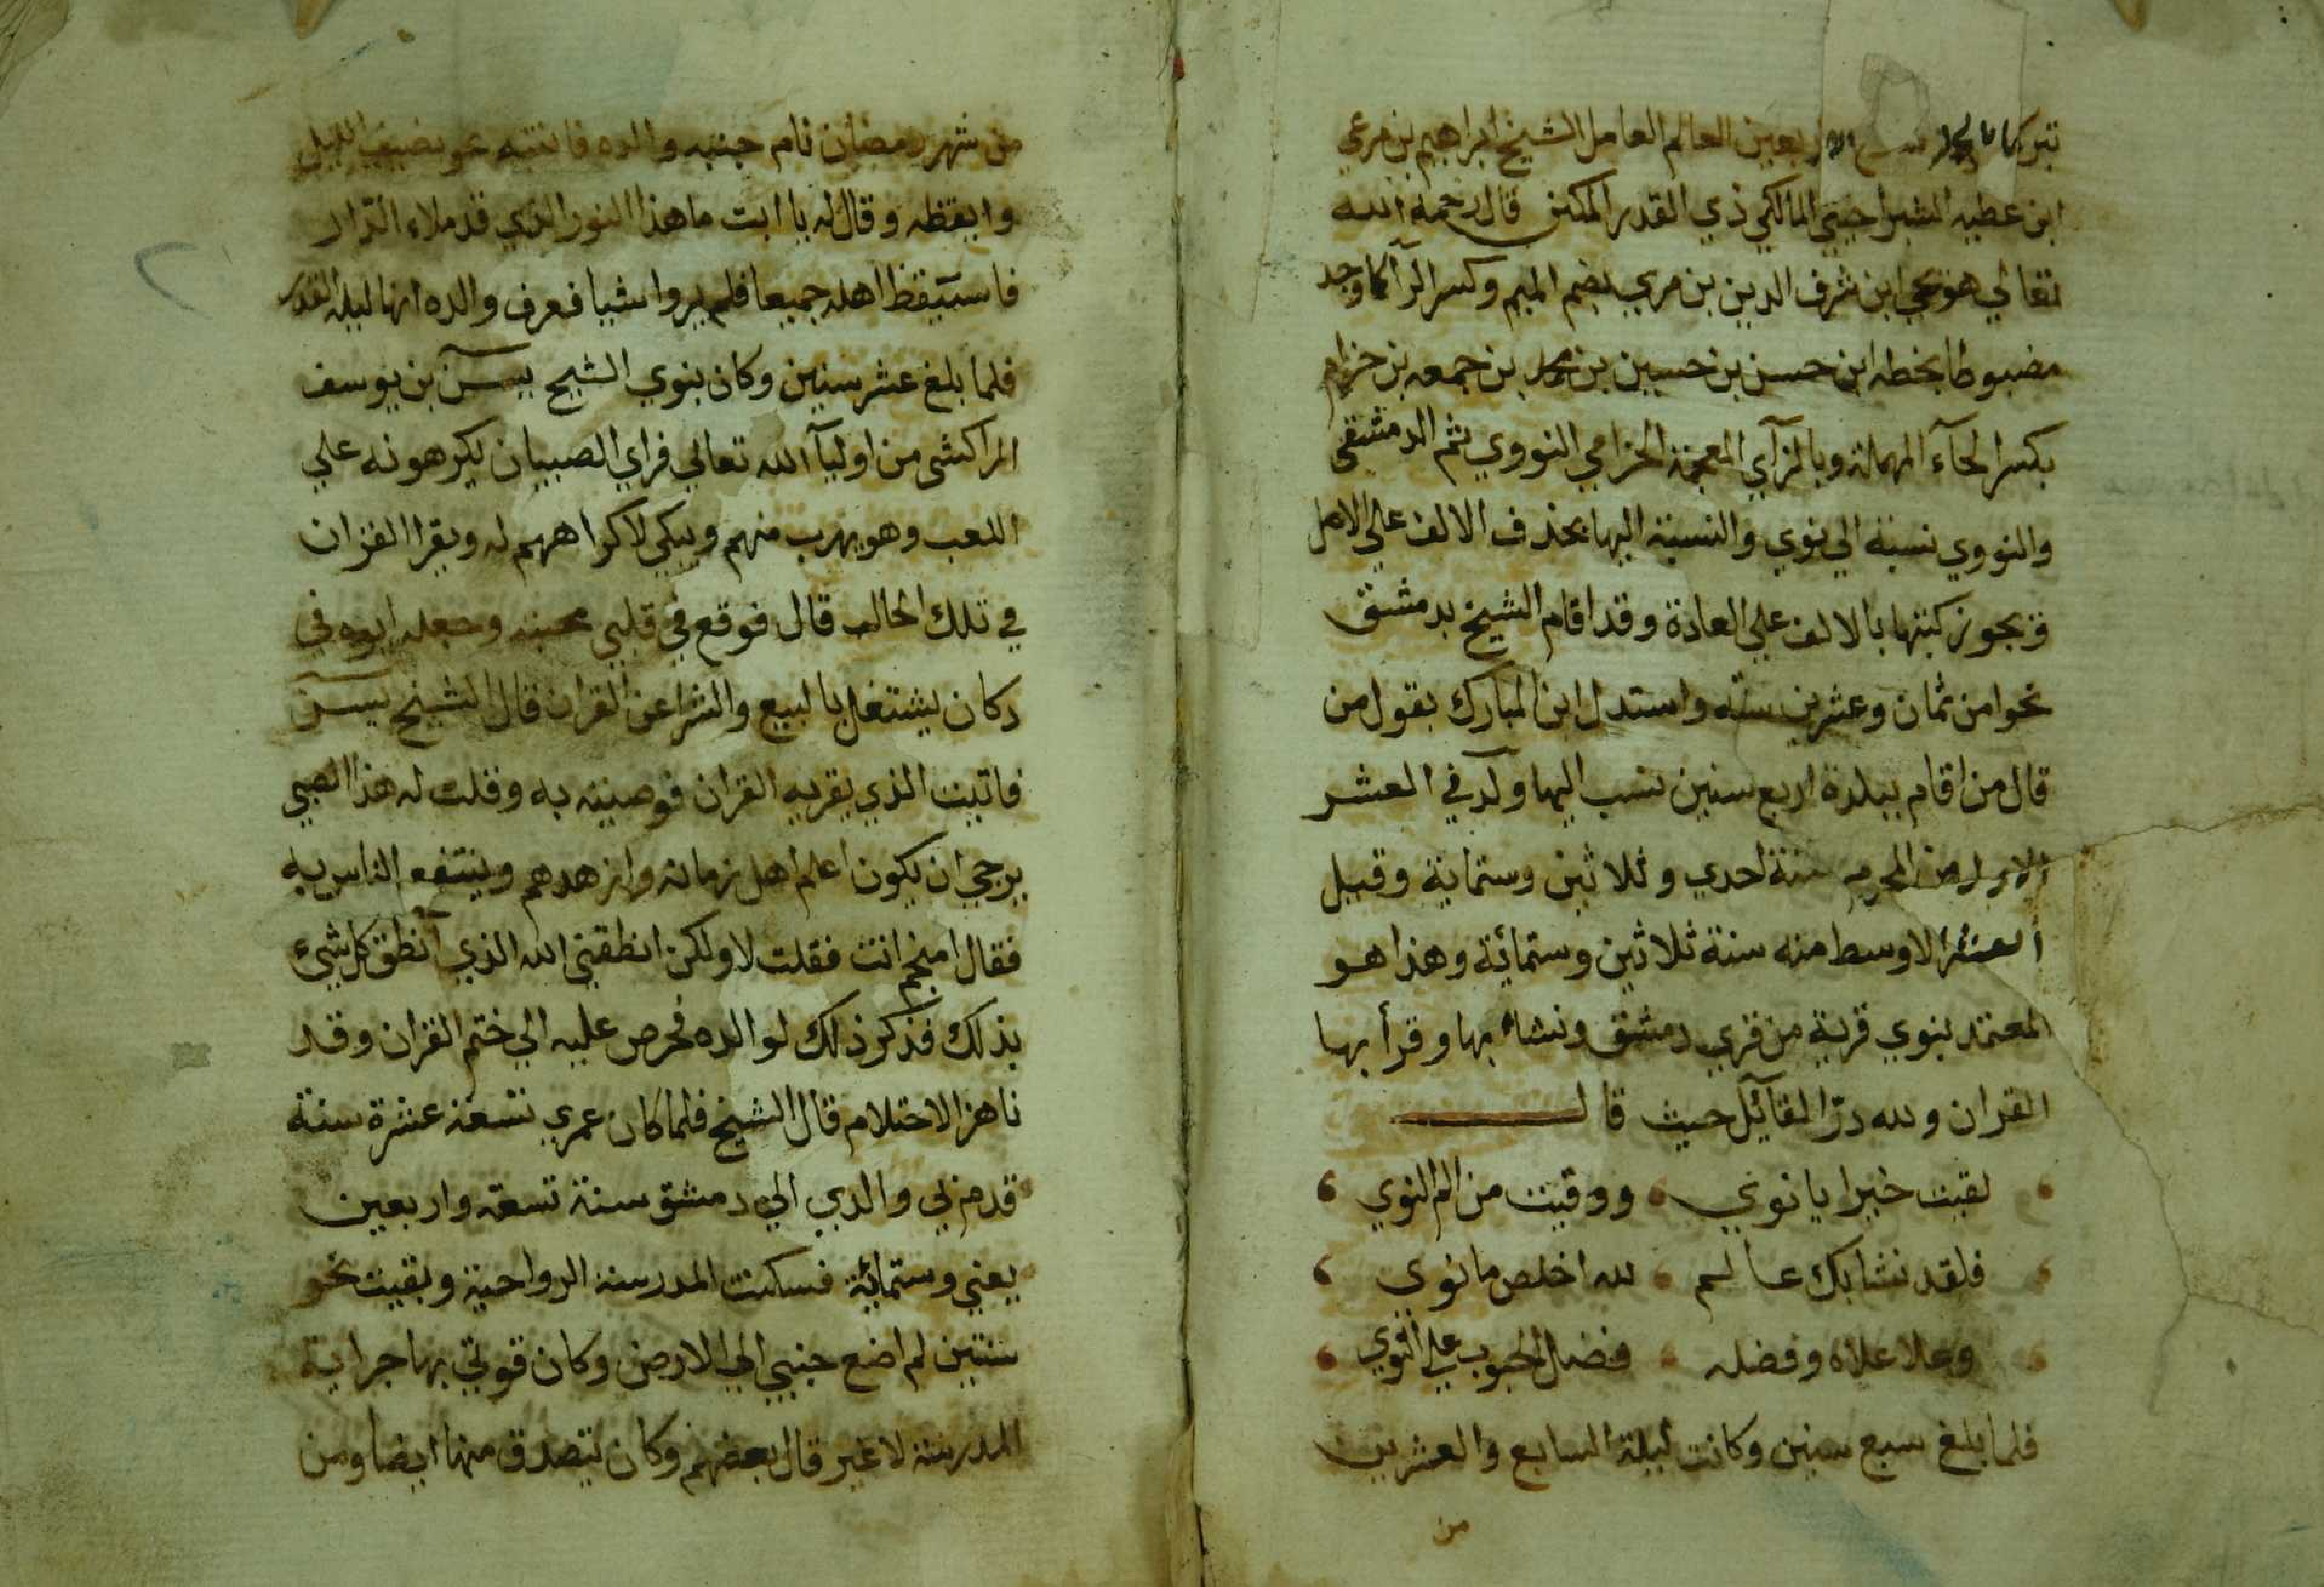 تبركا الاربعين العالم العامل الشيخ ابراهيم بن مرعي
ابن عطيه الشبراخيتي المالكي ذي القدر المكين قال رحمه الله
تعالي هو يحيي ابن شرف الدين بن مري بضم الميم وكسر الرآ كما وجد
مضبوطا بخطه ابن حسن بن حسين بن محمد بن جمعه بن حزام
بكسر الحآء المهملة وبالزآي المعجمة الحزامي النووي ثم الدمشقي
والنووي نسبة الي نوي والنسبة اليها بحذف الالف علي الاصل
ويجوز كتبها بالالف علي العادة وقد اقام الشيخ بدمشق
نحوا من ثمان وعشرين سنه واستدل ابن المبارك بقول من
قال من اقام ببلدة اربع سنين نسب اليها ولد في العشر
الاول من المحرم سنة احدي وثلاثين وستماية وقيل
العشر الاوسط منه سنة ثلاثين وستمائة وهذا هو
المعتمد بنوي قرية من قري دمشق ونشاء بها وقرأ بها
القران ولله درّ القآئل حيث قال
لقيت خيرا يا نوي ووقيت من الم النوي
فلقد نشا بك عالم لله اخلص ما نوي
وعلا علاه وفضله فضل الحبوب علي النوي
فلما بلغ سبع سنين وكانت ليلة السابع والعشرين
من
من شهر رمضان نام جنب والده فانتبه نحو نصف الليل
وايقظه وقال له يا ابت ما هذا النور الذي قد ملاء الدار
فاستيقظ اهله جميعا فلم يروا شيا فعرف والده انها ليلة القدر
فلما بلغ عشر سنين وكان بنوي الشيخ يسٓ بن يوسف
المراكشي من اوليآ الله تعالي فراي الصبيان يكرهونه علي
اللعب وهو يهرب منهم ويبكي لاكراههم له ويقرا القران
في تلك الحالة قال فوقع في قلبي محبته وجعله ابوه في
دكان يشتغل بالبيع والشرا عن القران قال الشيخ يسٓ
فاتيت الذي يقريه القران فوصيته به وقلت له هذا الصبي
يرجي ان يكون اعلم اهل زمانه وازهدهم وينتفع الناس به
فقال امنجم انت فقلت لا ولكن انطقني الله الذي أنطق كل شيء
بذلك فذكر ذلك لوالده فحرص عليه الي ختم القران وقد
ناهز الاحتلام قال الشيخ فلما كان عمري تسعة عشرة سنة
قدم بي والدي الي دمشق سنة تسعه واربعين
يعني وستمائة فسكنت المدرسة الرواحية وبقيت نحو
سنتين لم اضع جنبي الي الارض وكان قوتي بها جراية
المدرسة لا غير قال بعضهم وكان يتصدق منها ايضا ومن